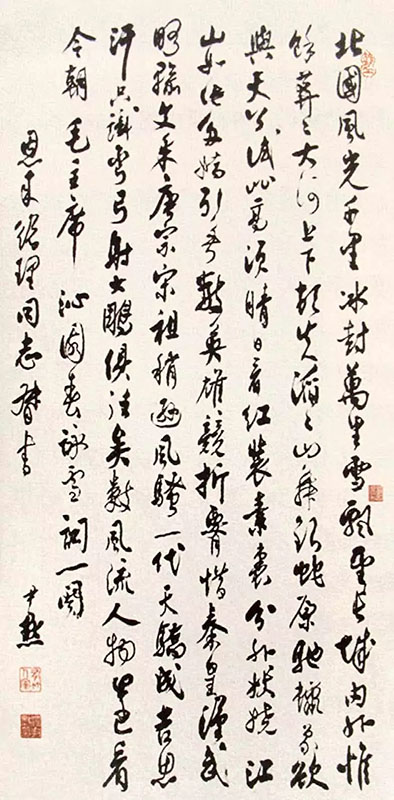 北國風光千里冰封萬里雪飄望長城内外惟
餘莽々大河上下頓失滔々山舞銀蛇原馳蠟象欲
與天公試比高須晴日看紅裝素裹分外妖嬈江
山如此多嬌引無數英雄競折腰惜秦皇漢武
略輸文采唐宗宋祖稍遜風騷一代天驕成吉思
汗只識彎弓射大鵰俱往矣數風流人物還看
今朝 毛主席 沁園春詠雪詞一闋
恩来總理同志書
尹默